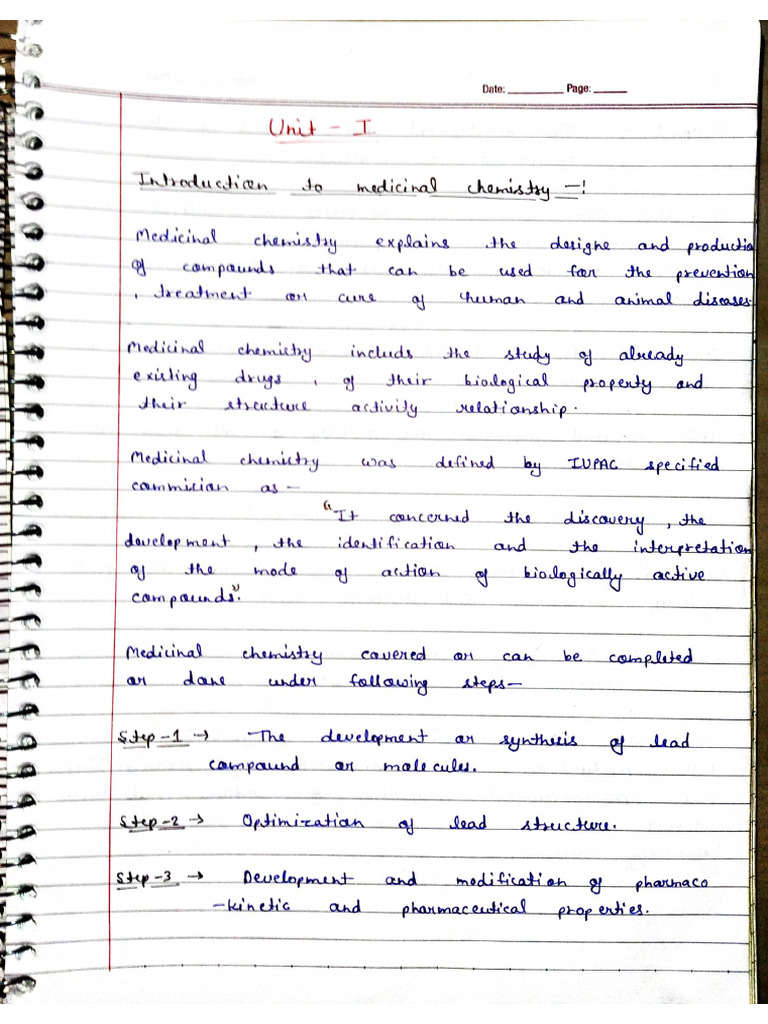 Date: ________ Page: _____
Unit - I
Introduction to medicinal chemistry -!
Medicinal chemistry explains the designe and productio
of compounds that can be used for the prevention
, treatment or cure of human and animal diseases.
Medicinal chemistry includs the study of already
existing drugs , of their biological property and
their structure activity relationship.
Medicinal chemistry was defined by IUPAC specified
commician as -
"It concerned the discovery , the
development , the identification and the interpretation
of the mode of action of biologically active
compounds".
Medicinal chemistry covered or can be completed
or done under following steps-
Step-1 → The development or synthesis of lead
compound or molecules.
Step-2 → Optimization of lead structure.
Step-3 → Development and modification of pharmaco
-kinetic and pharmaceutical properties.